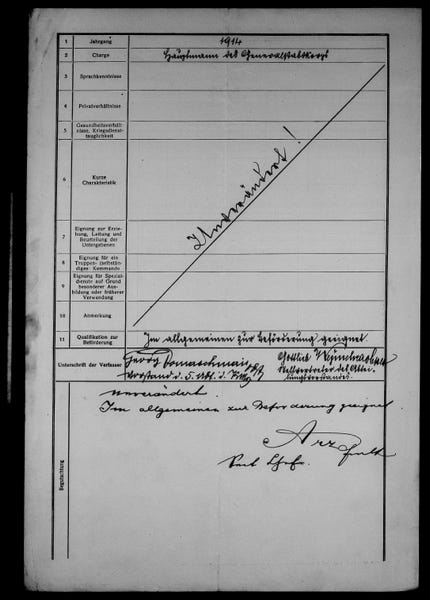 1 Jahrgang 1914
2 Charge Hauptmann des Generalstabskorps
3 Sprachkenntnisse
4 Privatverhältnisse
5 Gesundheitsverhält-
nisse, Kriegsdienst-
tauglichkeit
6 Kurze
Charakteristik
Unverändert!
7 Eignung zur Erzie-
hung, Leitung und
Beurteilung der
Untergebenen
8 Eignung für ein
Truppen- (selbständi-
ges) Kommando
9 Eignung für Spezial-
dienste auf Grund
besonderer Aus-
bildung oder früherer
Verwendung
10 Anmerkung
11 Qualifikation zur
Beförderung
Im allgemeinen zur Beförderung geeignet.
Unterschrift der Verfasser
Georg Domaschnian
Vorstand d. 5. Abt. d.
Gottlieb
Stellvertreter des Abtei-
lungsvorstandes.
Begutachtung
unverändert.
Im allgemeinen zur Beförderung geeignet
Arz
Sekt Chef.